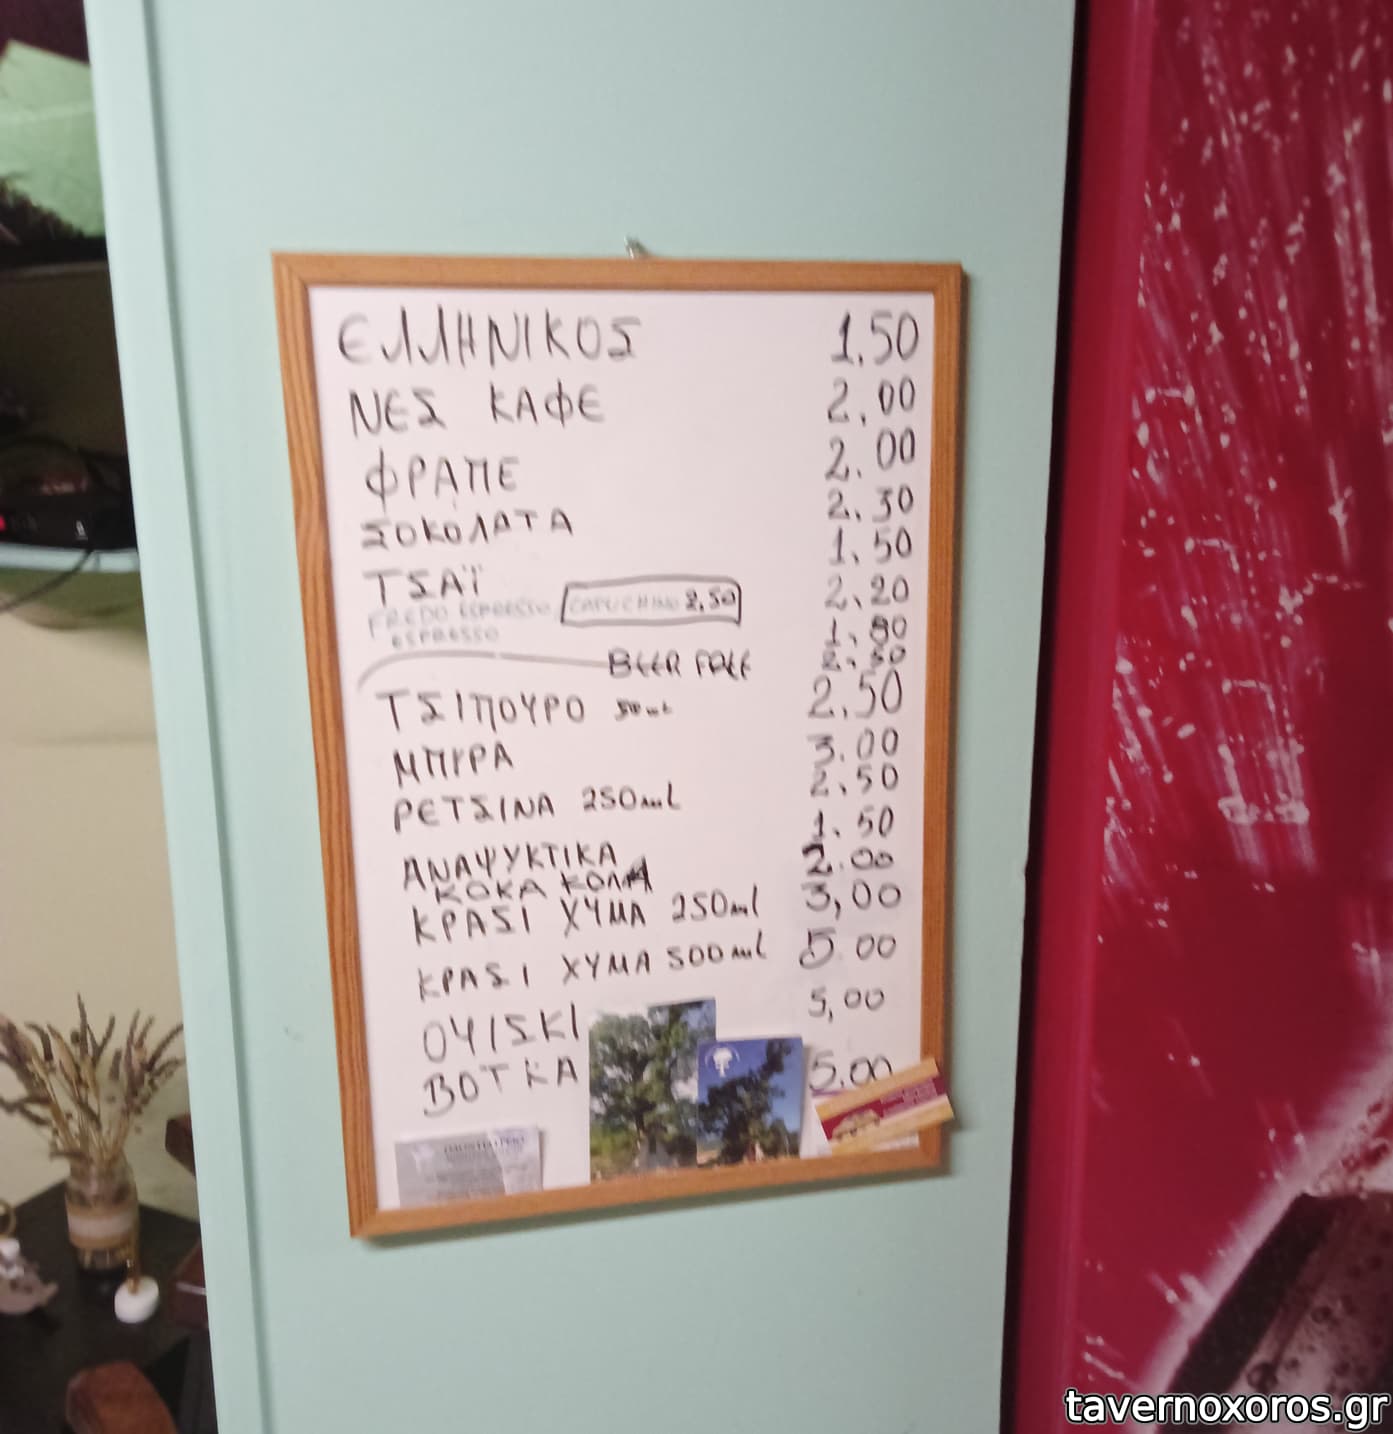 ΕΛΛΗΝΙΚΟΣ 1.50
ΝΕΣ ΚΑΦΕ 2,00
ΦΡΑΠΕ 2.00
ΣΟΚΟΛΑΤΑ 2.30
ΤΣΑΪ 1.50
FREDO ESPRESSO CAPUCHINO 2,50 2.20
ESPRESSO
BEER FREE
ΤΣΙΠΟΥΡΟ 50ml 2,50
ΜΠΥΡΑ 3.00
ΡΕΤΣΙΝΑ 250ml 2.50
ΑΝΑΨΥΚΤΙΚΑ 1.50
ΚΟΚΑ ΚΟΛΑ 2.00
ΚΡΑΣΙ ΧΥΜΑ 250ml 3,00
ΚΡΑΣΙ ΧΥΜΑ 500ml 5.00
ΟΥΙΣΚΙ 5,00
ΒΟΤΚΑ 5.00
tavernoxoros.gr